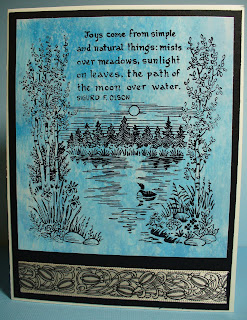 Joys come from simple
and natural things: mists
over meadows, sunlight
on leaves, the path of
the moon over water.
SIGURD F. OLSON